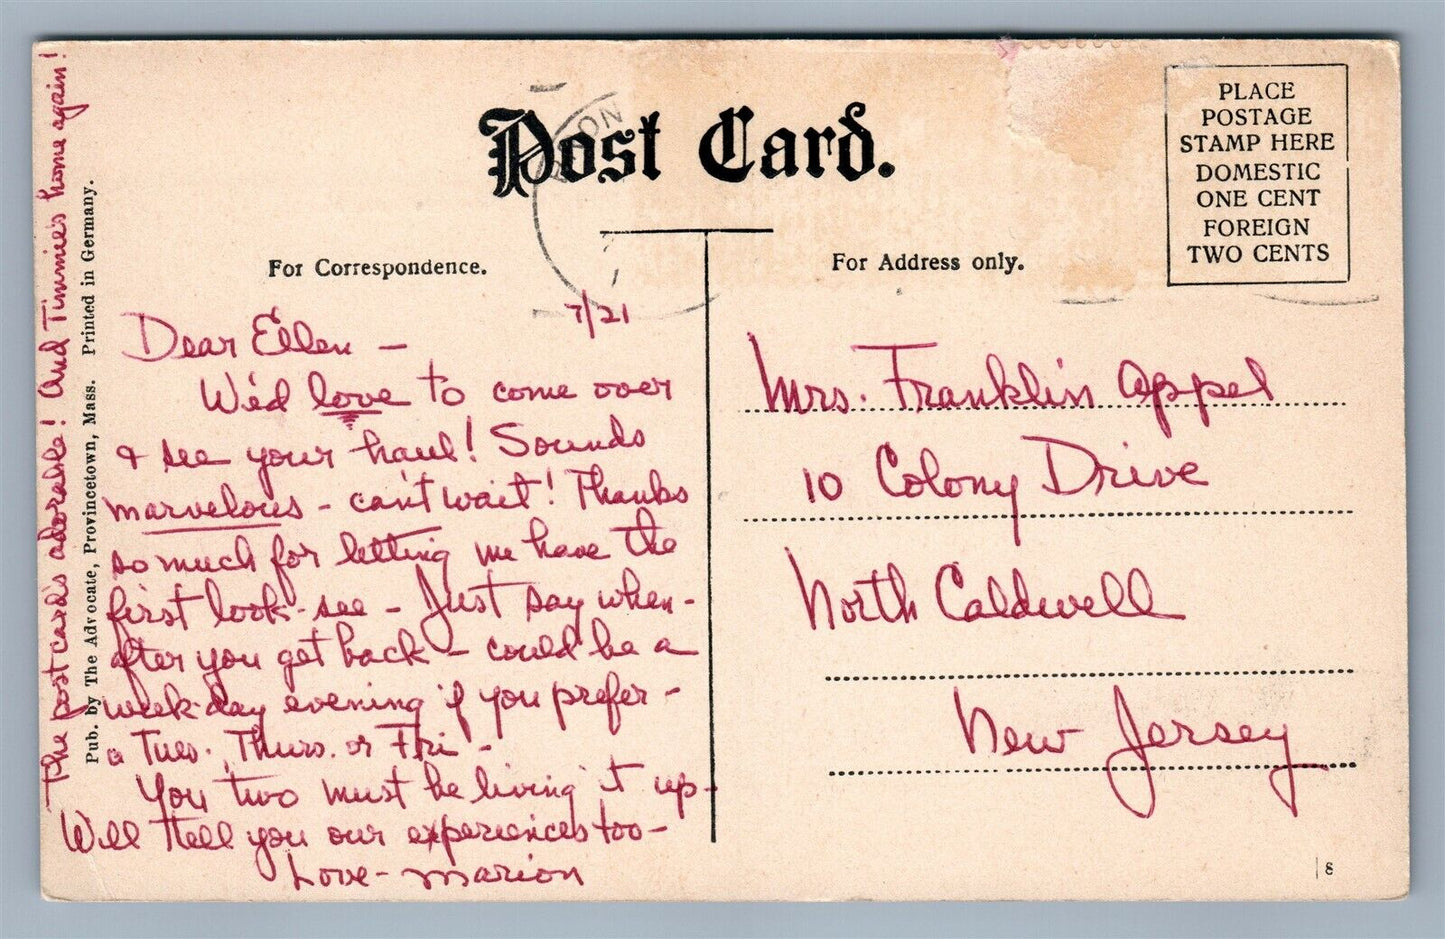 Post Card.
PLACE
POSTAGE
STAMP HERE
DOMESTIC
ONE CENT
FOREIGN
TWO CENTS
For Correspondence.
For Address only.
7/21
Dear Ellen –
We'd love to come over
& see your haul! Sounds
marvelous – can't wait! Thanks
so much for letting me have the
first look-see – Just say when-
after you get back – could be a
week-day evening if you prefer –
a Tues. Thurs. or Fri –
You two must be living it up –
Will tell you our experiences too –
Love – Marion
The postcard's adorable! And Timmie's home again!
Pub. by The Advocate, Provincetown, Mass. Printed in Germany.
Mrs. Franklin Appel
10 Colony Drive
North Caldwell
New Jersey
8